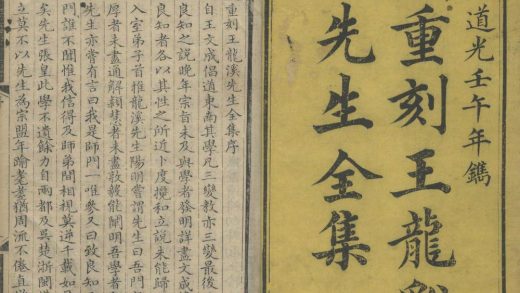 道光壬午年鐫
重刻王龍
先生全集
重刻王龍溪先生全集序
自王文成倡道東南其學凡三變教亦三變最後
良知之說晚年宗旨未及與學者發明詳盡文成
良知者各以其性之所近卜度攙和立說未能歸
入室弟子首推龍溪先生陽明嘗謂先生曰吾門
厚者未盡通解穎慧者未盡敦毅能闡明吾學者
先生亦嘗有言曰我是師門一唯參又曰致良知
門誰不聞惟我信得及師弟間相視莫逆千載如
矣先生張皇此學不遺餘力自兩都及吳楚浙閩
立莫不以先生為宗盟年踰耄耋猶周流不倦